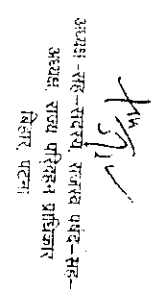 अध्यक्ष-सह-सदस्य, राजस्व पर्षद-सह-
अध्यक्ष, राज्य परिवहन प्राधिकार
बिहार, पटना।